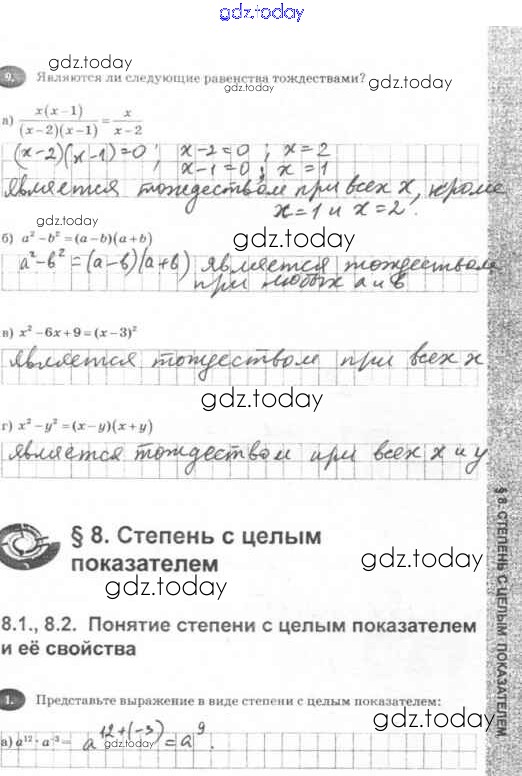 gdz.today
gdz.today
9. Являются ли следующие равенства тождествами?
gdz.today
а) x(x−1)/(x−2)(x−1) = x/x−2
(x−2)(x−1)=0; x−2=0; x=2
x−1=0; x=1
является тождеством при всех x, кроме
x=1 и x=2.
gdz.today
б) a² − b² = (a − b)(a + b)
gdz.today
a²−b² = (a−b)(a+b) является тождеством
при любых a и b
в) x² − 6x + 9 = (x − 3)²
является тождеством при всех x
gdz.today
г) x² − y² = (x − y)(x + y)
является тождеством при всех x и y
§ 8. Степень с целым
показателем
gdz.today
gdz.today
8.1., 8.2. Понятие степени с целым показателем
и её свойства
1. Представьте выражение в виде степени с целым показателем:
gdz.today
а) a¹² · a⁻³ = a¹²⁺⁽⁻³⁾ = a⁹.
gdz.today
§ 8. СТЕПЕНЬ С ЦЕЛЫМ ПОКАЗАТЕЛЕМ